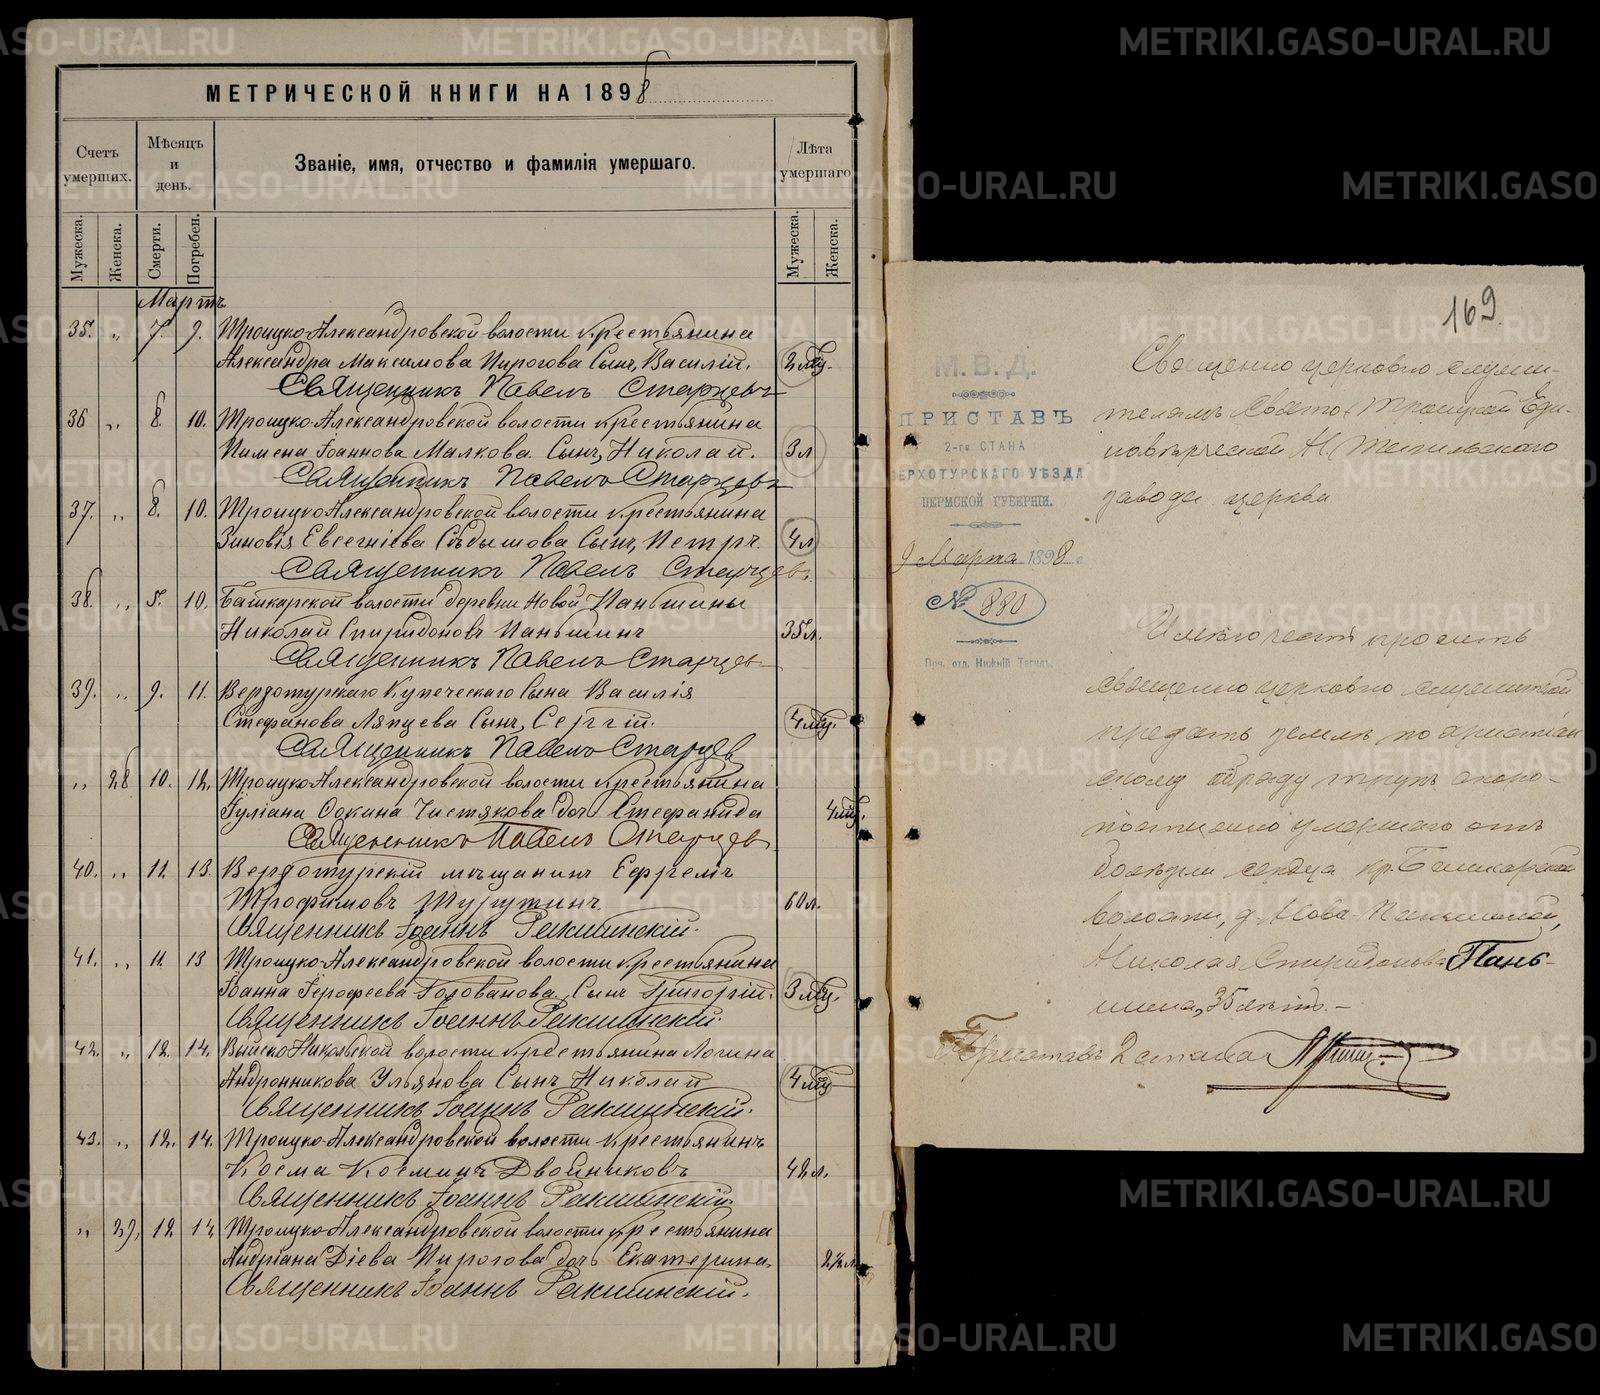 МЕТРИЧЕСКОЙ КНИГИ НА 1898
Счетъ умершихъ.
Мѣсяцъ и день.
Званіе, имя, отчество и фамилія умершаго.
Лѣта умершаго
Мужеска.
Женска.
Смерти.
Погребен.
Мужеска.
Женска.
Мартъ
35. „ 7. 9. Троицко-Александровской волости крестьянина
Александра Максимова Пирогова сынъ, Василій. 2 мц.
Священникъ Павелъ Старцевъ
36 „ 8. 10. Троицко-Александровской волости крестьянина
Пимена Іоаннова Малкова сынъ, Николай. 3 л
Священникъ Павелъ Старцевъ
37. „ 8. 10. Троицко-Александровской волости крестьянина
Зиновія Евсегніева сынъ, Петръ. 4 л
Священникъ Павелъ Старцевъ
38. „ 5. 10. Башкарской волости деревни Новой Паньшины
Николай Спиридоновъ Паньшинъ 35 л.
Священникъ Павелъ Старцевъ
39. „ 9. 11. Верхотурскаго Купеческаго сына Василія
Стефанова Ляпцева сынъ, Сергій. 4 мц.
Священникъ Павелъ Старцевъ
„ 28 10. 12. Троицко-Александровской волости крестьянина
Іуліана Фокина Чистякова дочь Стефанида 4 мц.
Священникъ Павелъ Старцевъ
40. „ 11. 13. Верхотурскій мѣщанинъ Ефремъ
Трофимовъ 60 л.
Священникъ Іоаннъ Ракшинскій.
41. „ 11. 13 Троицко-Александровской волости крестьянина
Іоанна Іерофеева Голованова сынъ Григорій. 3 мц.
Священникъ Іоаннъ Ракшинскій.
42. „ 12. 14. Выйско-Никольской волости крестьянина Логина
Андронникова Ульянова сынъ Николай 4 мц
Священникъ Іоаннъ Ракшинскій.
43. „ 12. 14. Троицко-Александровской волости крестьянинъ
Косма Косминъ Двойниковъ 42 л.
Священникъ Іоаннъ Ракшинскій.
„ 29, 12 14, Троицко-Александровской волости крестьянина
Андріана Діева Пирогова дочь Екатерина. 2½ л.
Священникъ Іоаннъ Ракшинскій.
169.
М. В. Д.
ПРИСТАВЪ
2-го СТАНА
ВЕРХОТУРСКАГО УѢЗДА
ПЕРМСКОЙ ГУБЕРНІИ.
9 Марта 1898 г
№ 880
Поч. отд. Нижній Тагилъ.
Священно церковно служи-
телямъ Свято Троицкой Еди-
новѣрческой Н. Тагильскаго
завода церкви
Имѣю честь просить
священно церковно служителей
предать землѣ по христіан
скому обряду трупъ скоро-
постижно умершаго отъ
болѣзни сердца кр. Башкарской
волости, д. Ново-Паньшиной,
Николая Спиридонова Пань-
шина, 35 лѣтъ. —
Приставъ 2 стана
METRIKI.GASO-URAL.RU